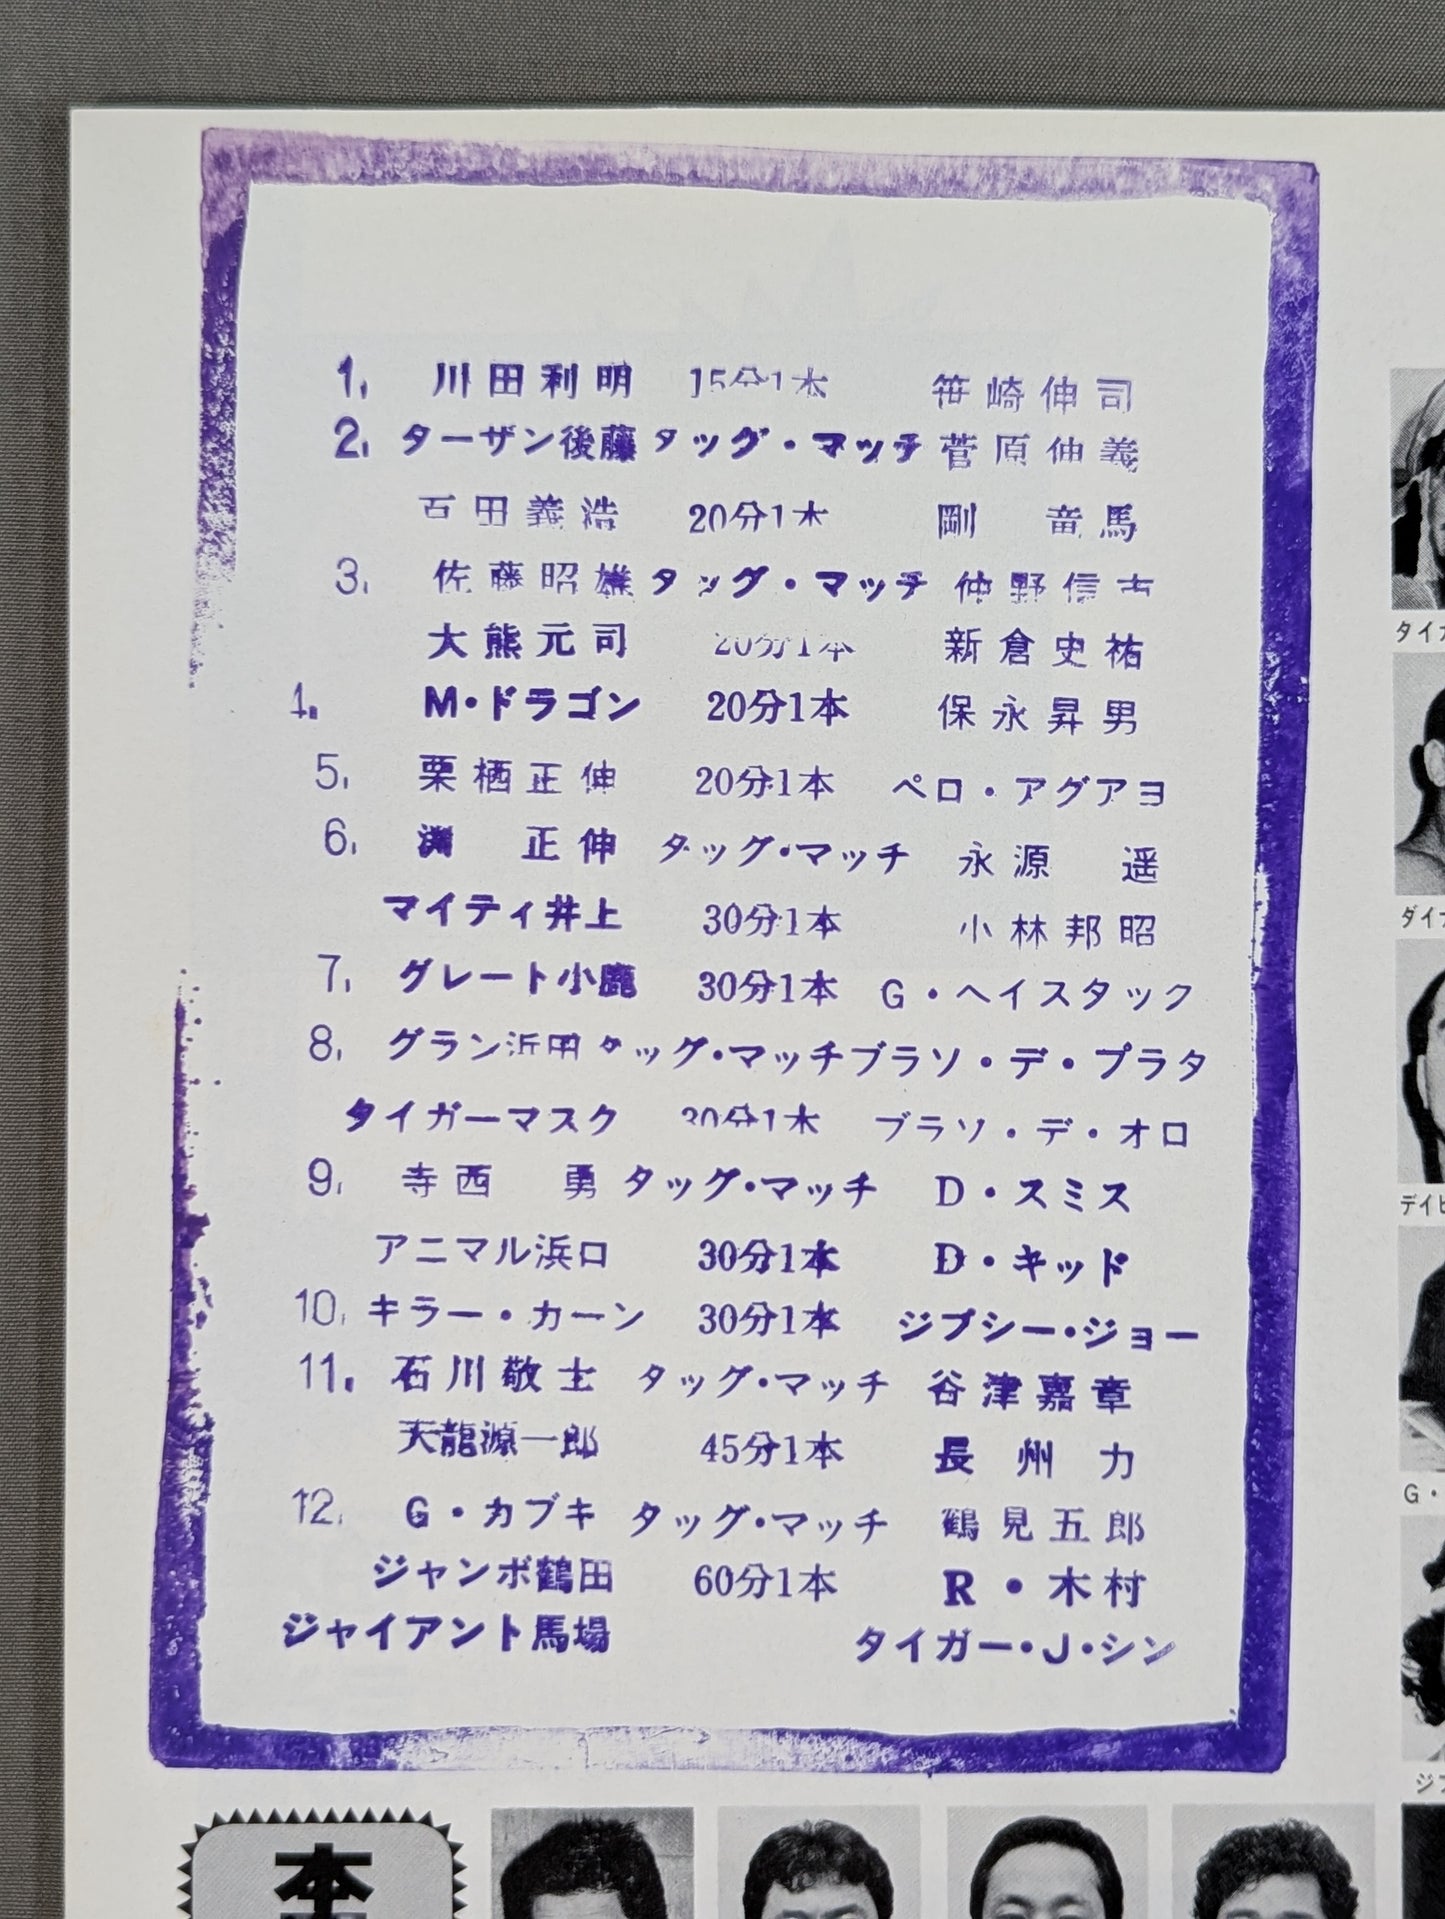 1. 川田利明 15分1本 笹崎伸司
2. ターザン後藤 タッグ・マッチ 菅原伸義
百田義浩 20分1本 剛 竜馬
3. 佐藤昭雄 タッグ・マッチ 仲野信市
大熊元司 20分1本 新倉史祐
4. M・ドラゴン 20分1本 保永昇男
5. 栗栖正伸 20分1本 ペロ・アグアヨ
6. 渕 正伸 タッグ・マッチ 永源 遥
マイティ井上 30分1本 小林邦昭
7. グレート小鹿 30分1本 G・ヘイスタック
8. グラン浜田 タッグ・マッチ ブラソ・デ・プラタ
タイガーマスク 30分1本 ブラソ・デ・オロ
9. 寺西 勇 タッグ・マッチ D・スミス
アニマル浜口 30分1本 D・キッド
10. キラー・カーン 30分1本 ジプシー・ジョー
11. 石川敬士 タッグ・マッチ 谷津嘉章
天龍源一郎 45分1本 長州 力
12. G・カブキ タッグ・マッチ 鶴見五郎
ジャンボ鶴田 60分1本 R・木村
ジャイアント馬場 タイガー・J・シン
タイガ
ダイナ
デイビ
G・
ジプ
本